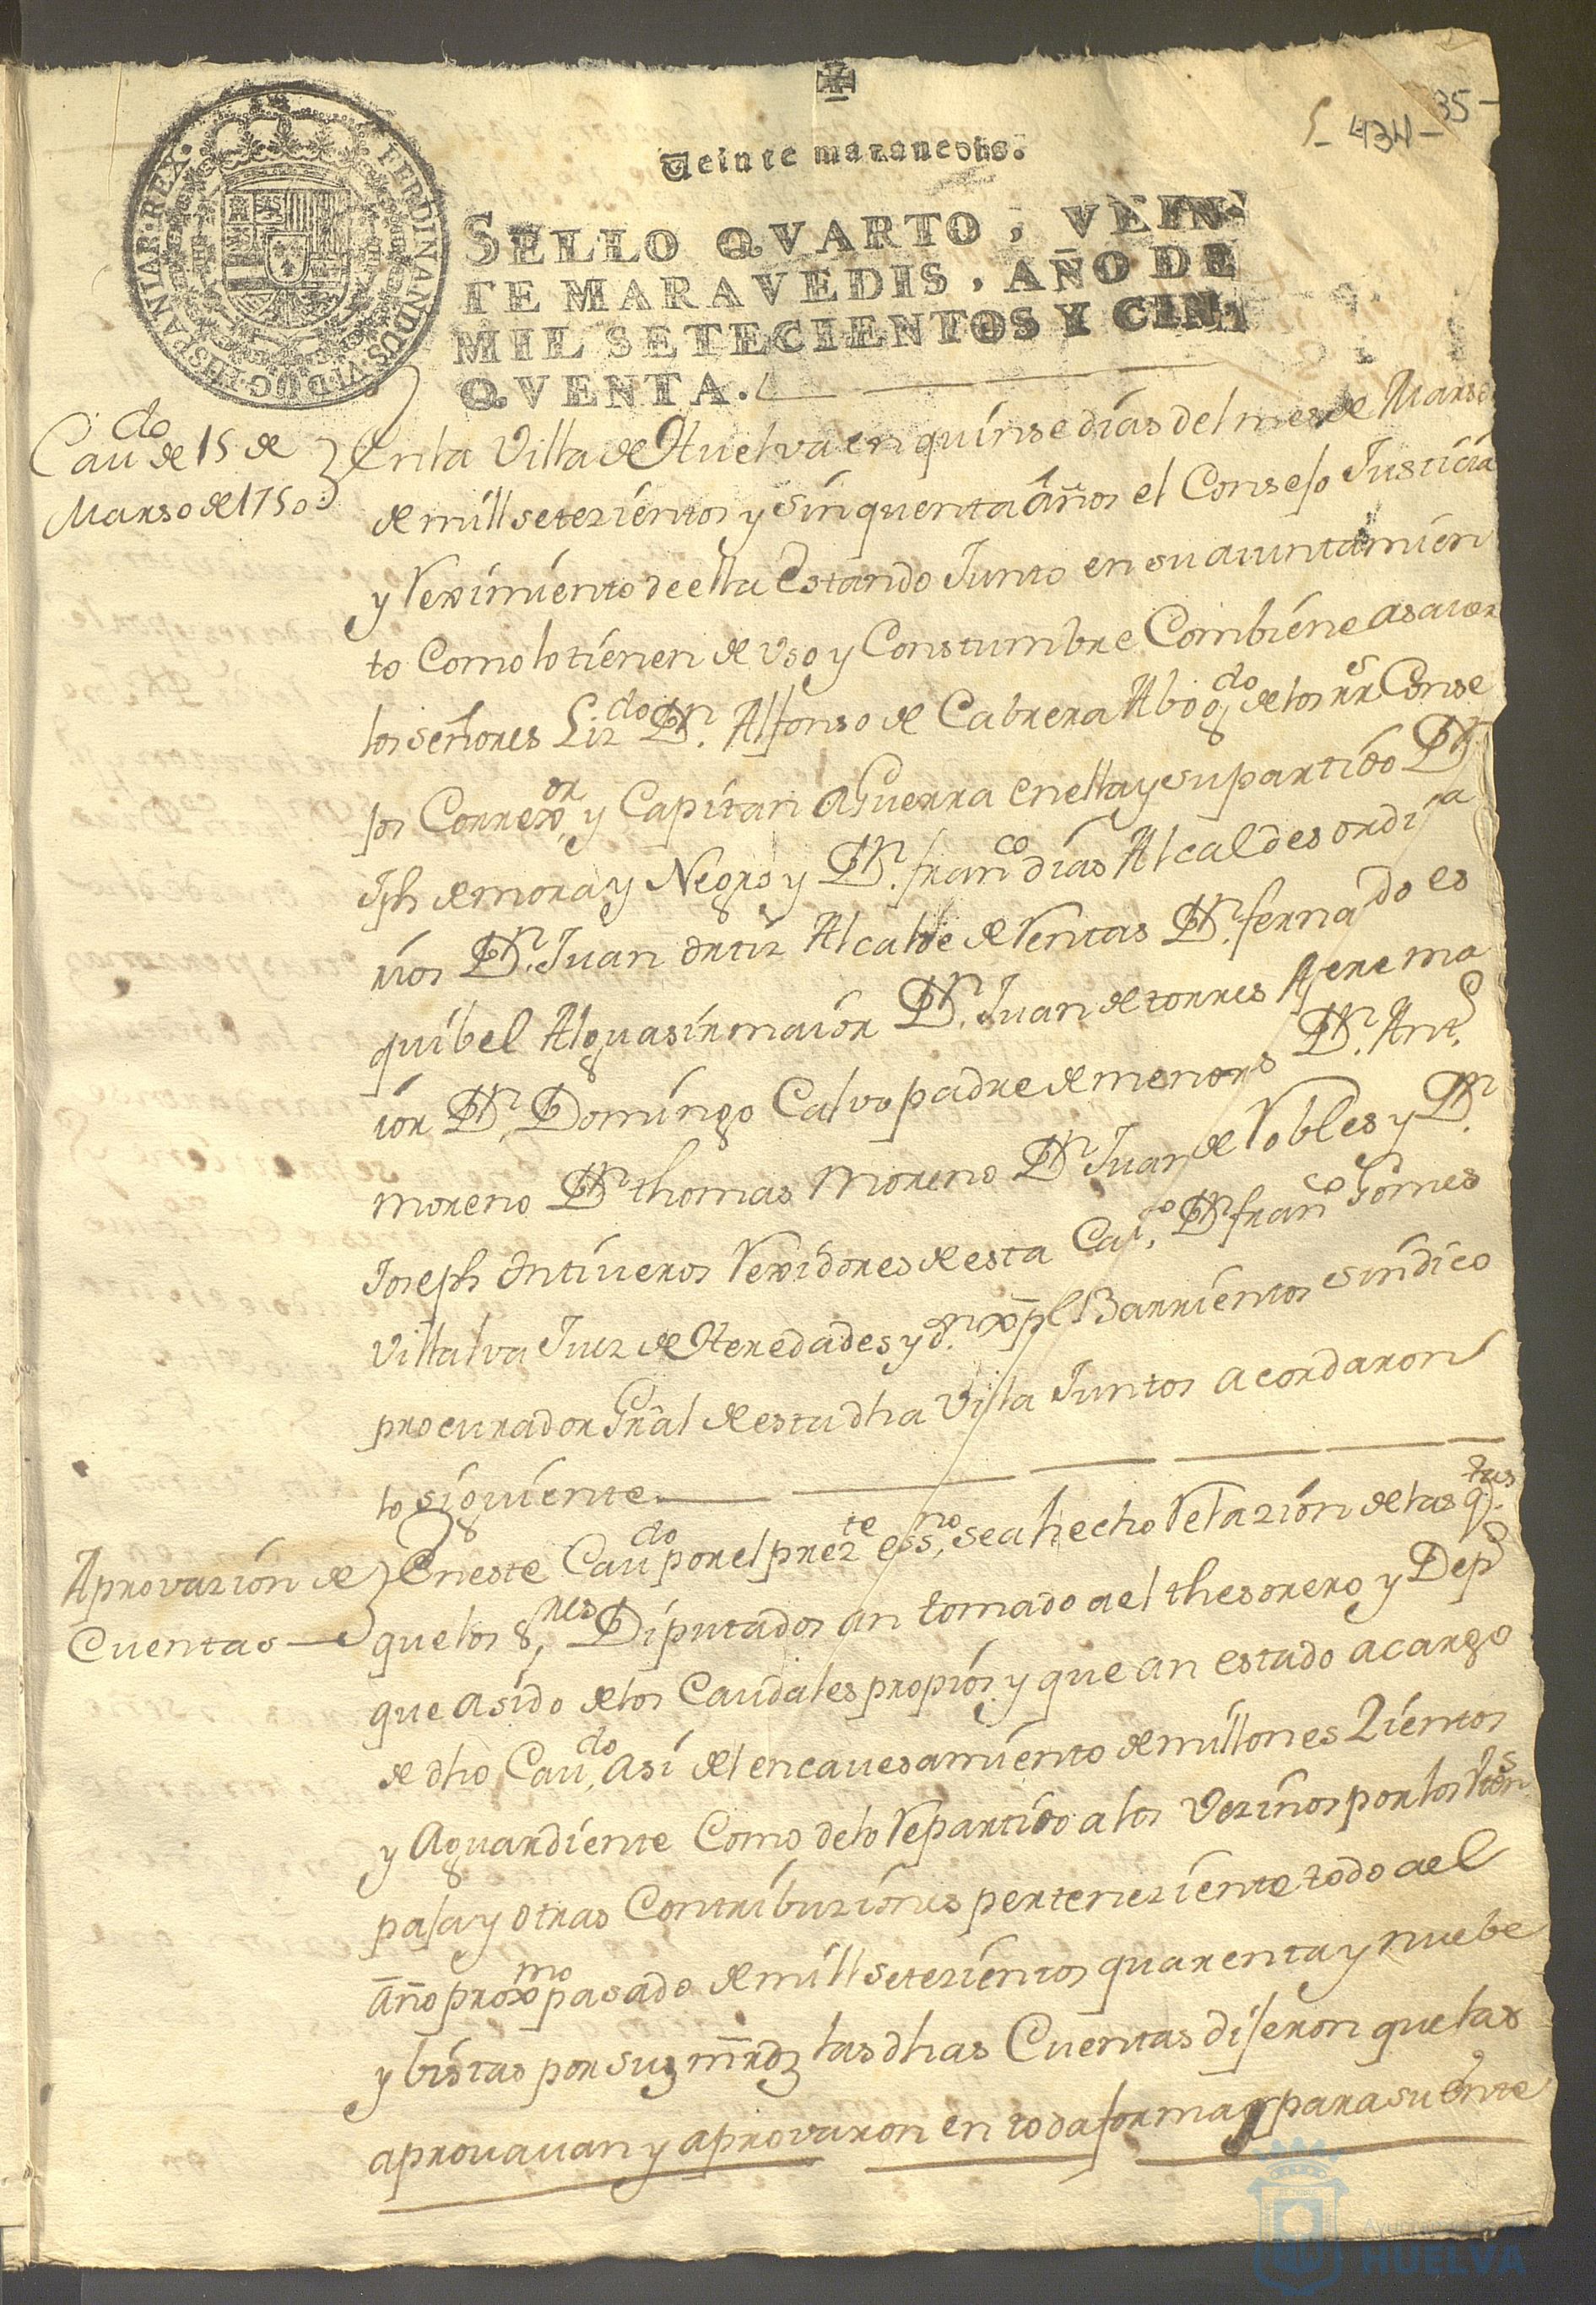 5-434-35-
Veinte maravedis.
SELLO QVARTO, VEIN-
TE MARAVEDIS, AÑO DE
MIL SETECIENTOS Y CIN-
QVENTA.
FERDINANDUS·VI·D·G·HISPANIAR·REX·
Caudo de 15 de
Marso de 1750
En la Villa de Huelva en quinse dias del mes de Marso
de mill setezientos y sinquenta años el Consejo Justicia
y Reximiento de ella Estando Junto en su aiuntamien
to Como lo tienen de Vso y Constumbre Combiene a saver
los señores Lizdo Dn. Alfonso de Cabrera Abogdo de los rrs Conse
jos Correxor y Capitan a Guerra en ella y su partido Dn
Jph de mora y Negro y Dn. franco dias Alcaldes ordina
rios Dn. Juan ortiz Alcalde de Rentas Dn. fernado es
quibel Alguasir maior Dn. Juan de torres Afere ma
ior Dn. Domingo Calvo padre de menores Dn. Anto
moreno Dn thomas Moreno Dn Juan de Robles y Dn.
Joseph ontiveros Rexidores de esta Cao. Dn franco Gomes
Villalva Juez de Heredades y dn. xpl Barrientos sindico
procurador Gral de esta dha Villa Juntos acordaron
lo siguiente
Aprovazion de
Cuentas
En este Caudo por el prezte essno. se a hecho Relazion de las qtas
que los Sres Diputados an tomado a el thesorero y Depo
que a sido de los Caudales propios y que an estado a cargo
de dho Caudo. asi del encavesamiento de millones Zientos
y Aguardiente Como de lo Repartido a los Vezinos por los Utens
paja y otras Contribuziones perteneziente todo a el
año proxmo pasado de mill setezientos quarenta y nuebe
y bistas por sus mrds las dhas Cuentas dijeron que las
aprovavan y aprovaron en toda forma para su ente
Ayuntamiento
HUELVA